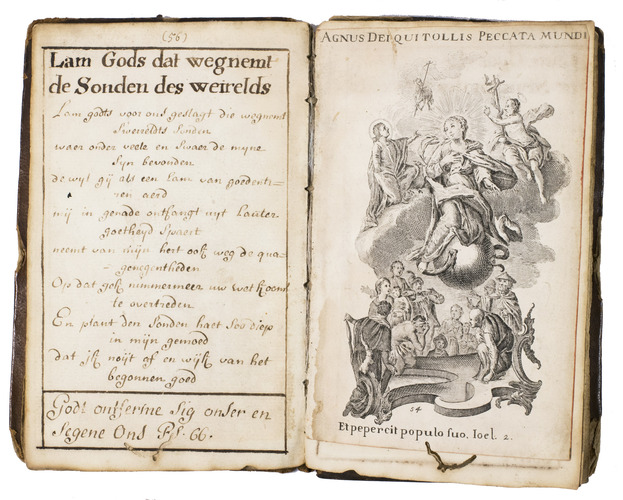 (56)
Lam Gods dat wegnemt
de Sonden des weirelds
Lam godts voor ons geslagt die wegnemt
Sweireldts Sonden
waer onder veele en swaer de myne
Syn bevonden
de wyl gij als een Lam van goedentie=
ren aerd
mij in genade ontfangt uyt Lauter
goetheyd Spaert
neemt van mijn hert ook weg de qua=
genegentheden
Op dat gek nimmermeer uw wet koom
te overtreden
En plant den Sonden haet Soo diep
in mijn gemoed
dat jk noijt of en wijk van het
begonnen goed
Godt ontferme Sig onser en
Segene Ons Ps. 66.
AGNUS DEI QUI TOLLIS PECCATA MUNDI
54
Et pepercit populo suo. Ioel. 2.